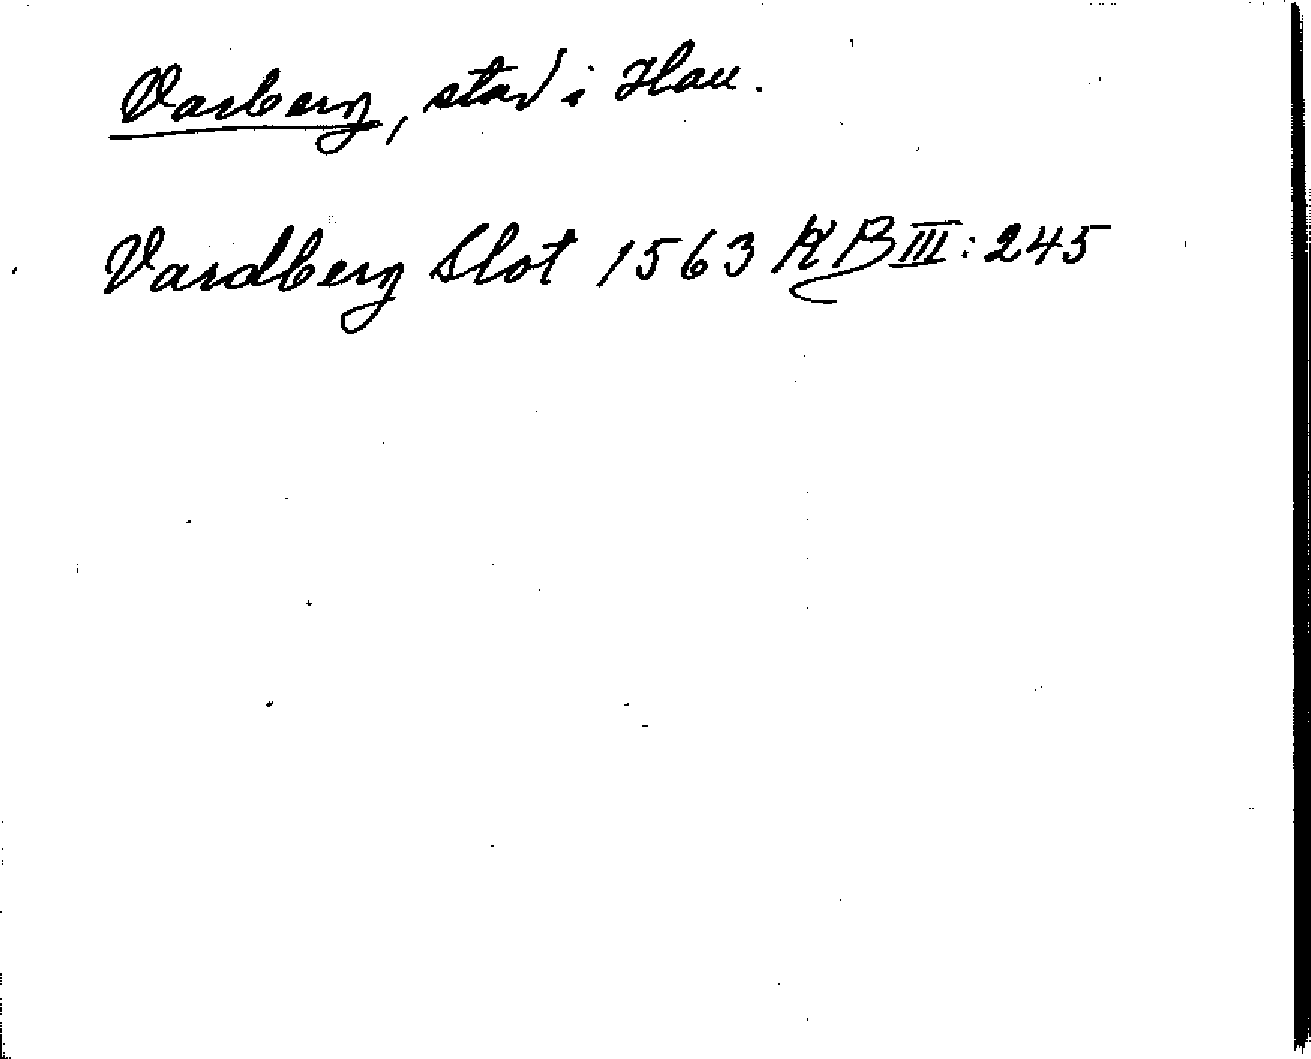 Varberg, stad i Hall.
Vardberg Slot 1563 KB III:245